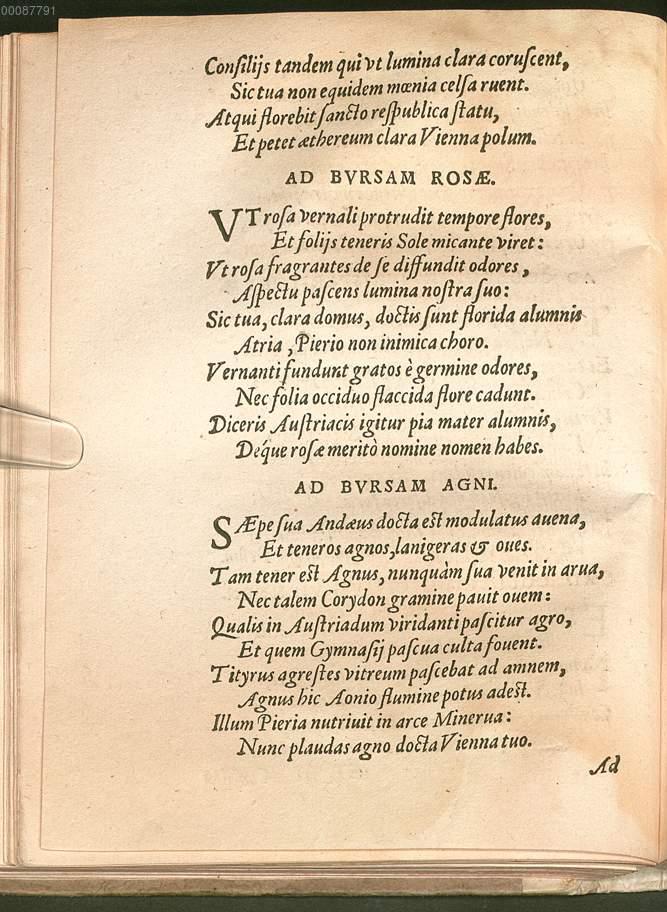 00087791
Conſilijs tandem qui vt lumina clara coruſcent,
Sic tua non equidem mœnia celſa ruent.
Atqui florebit ſancto reſpublica ſtatu,
Et petet æthereum clara Vienna polum.
AD BVRSAM ROSÆ.
VT roſa vernali protrudit tempore flores,
Et folijs teneris Sole micante viret:
Vt roſa fragrantes de ſe diffundit odores,
Aſpectu paſcens lumina noſtra ſuo:
Sic tua, clara domus, doctis ſunt florida alumnis
Atria, Pierio non inimica choro.
Vernanti fundunt gratos è germine odores,
Nec folia occiduo flaccida flore cadunt.
Diceris Auſtriacis igitur pia mater alumnis,
Déque roſæ meritò nomine nomen habes.
AD BVRSAM AGNI.
SÆpe ſua Andæus docta eſt modulatus auena,
Et teneros agnos, lanigeras & oues.
Tam tener eſt Agnus, nunquàm ſua venit in arua,
Nec talem Corydon gramine pauit ouem:
Qualis in Auſtriadum viridanti paſcitur agro,
Et quem Gymnaſij paſcua culta fouent.
Tityrus agreſtes vitreum paſcebat ad amnem,
Agnus hic Aonio flumine potus adeſt.
Illum Pieria nutriuit in arce Minerua:
Nunc plaudas agno docta Vienna tuo.
Ad